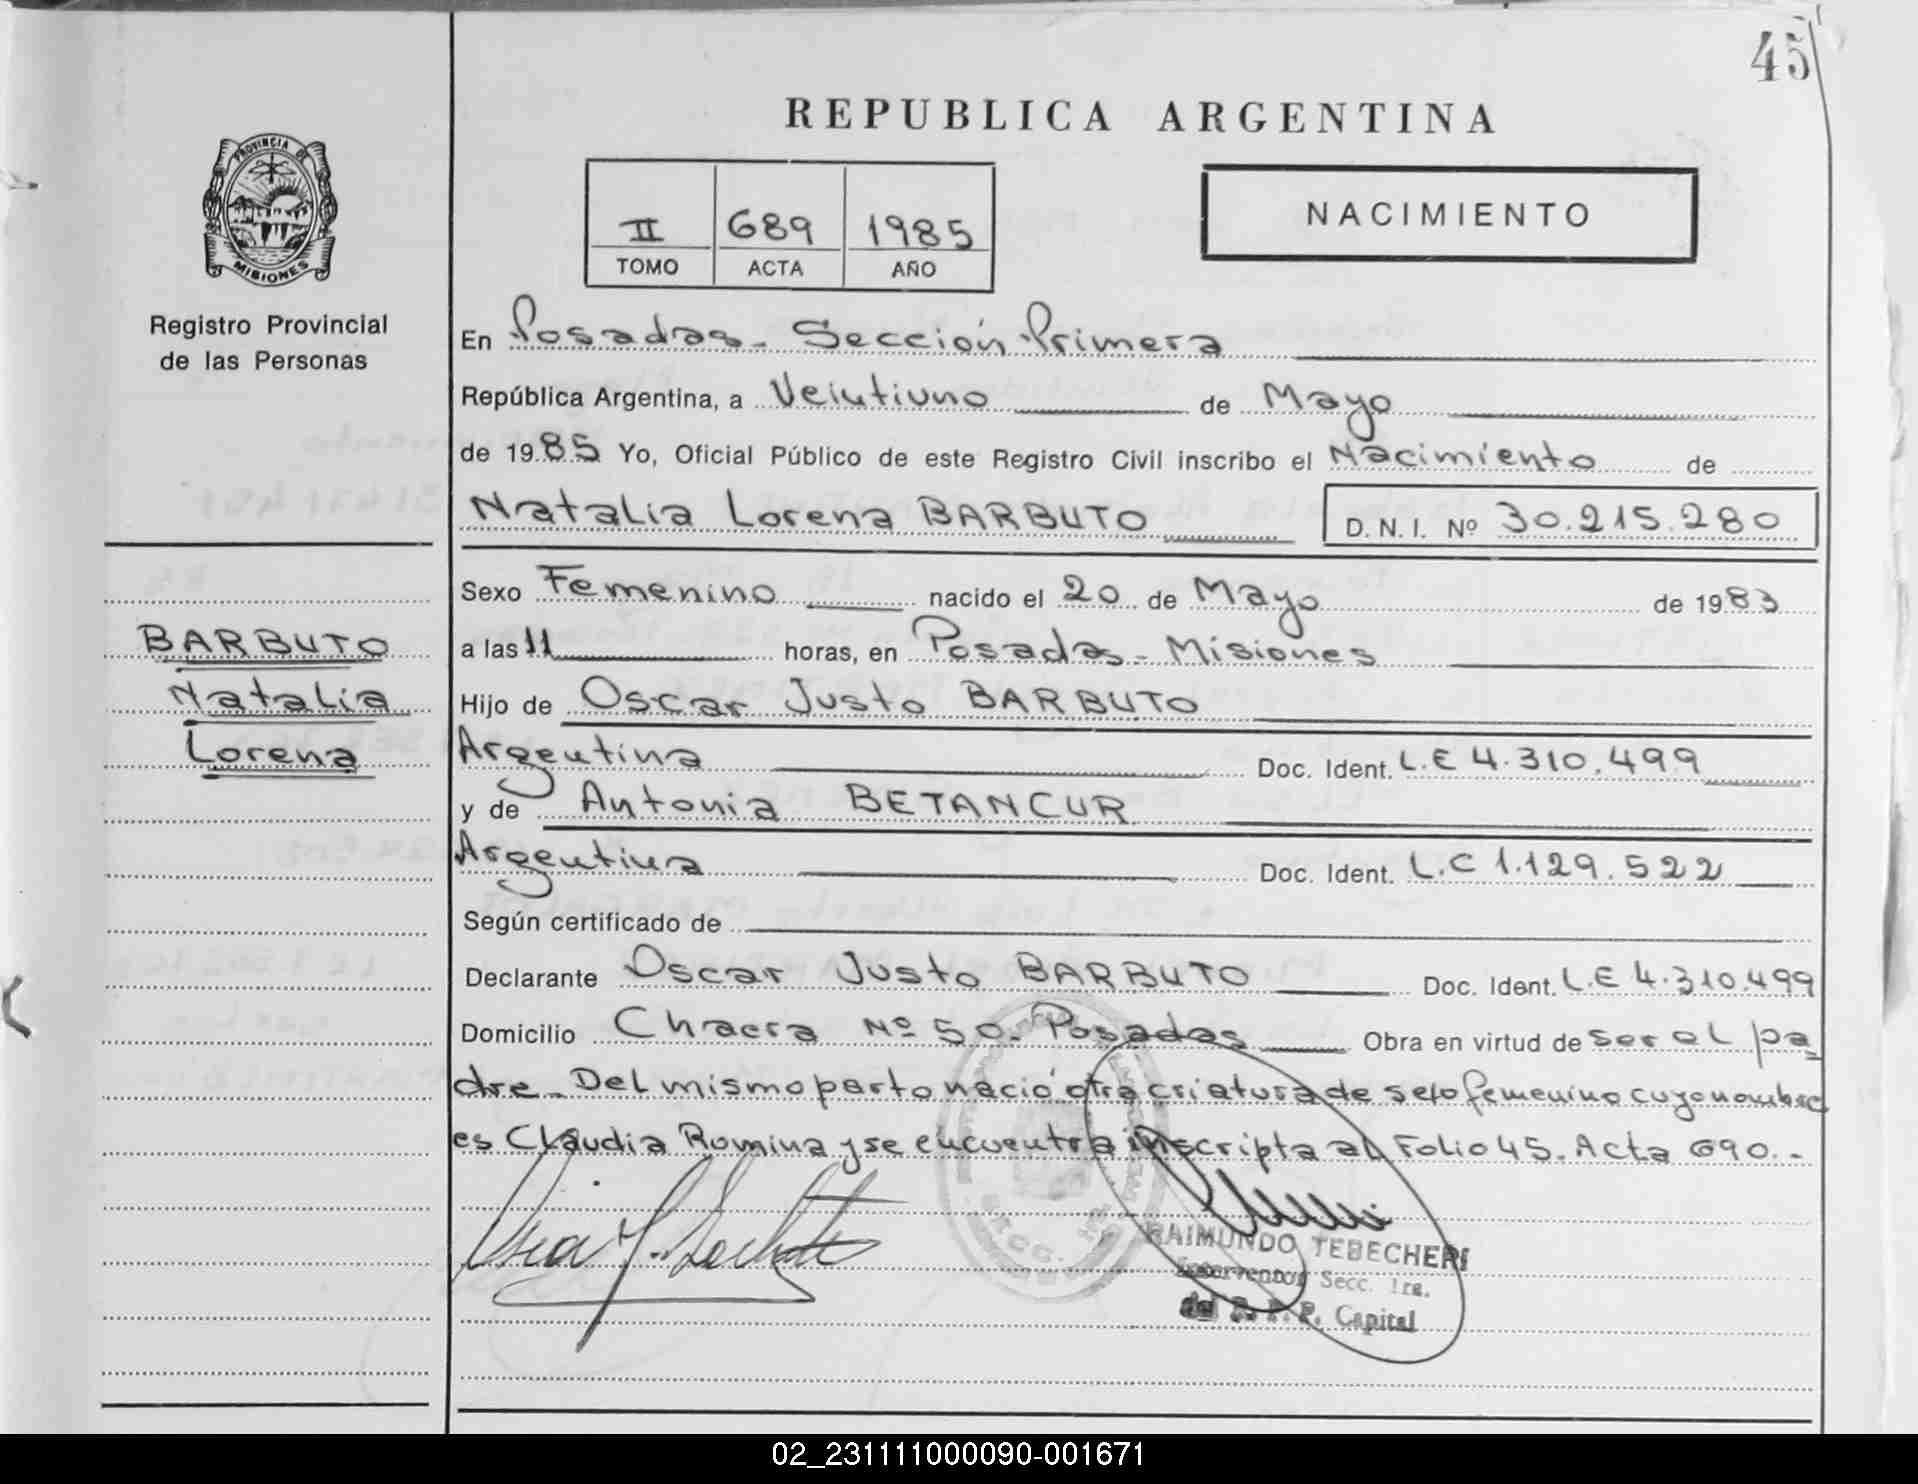 45
REPUBLICA ARGENTINA
PROVINCIA DE
MISIONES
Registro Provincial
de las Personas
II 689 1985
TOMO ACTA AÑO
NACIMIENTO
En Posadas - Sección Primera
República Argentina, a Veintiuno de Mayo
de 1985 Yo, Oficial Público de este Registro Civil inscribo el Nacimiento de
Natalia Lorena BARBUTO D. N. I. Nº 30.215.280
Sexo Femenino nacido el 20 de Mayo de 1983
BARBUTO
Natalia
Lorena
a las 11 horas, en Posadas - Misiones
Hijo de Oscar Justo BARBUTO
Argentina Doc. Ident. L.E 4.310.499
y de Antonia BETANCUR
Argentina Doc. Ident. L.C 1.129.522
Según certificado de
Declarante Oscar Justo BARBUTO Doc. Ident. L.E 4.310.499
Domicilio Chacra Nº 50. Posadas Obra en virtud de ser el pa
dre - Del mismo parto nació otra criatura de sexo femenino cuyo nombre
es Claudia Romina y se encuentra inscripta al Folio 45. Acta 690.-
RAIMUNDO TEBECHERI
Interventor Secc. 1ra.
del R. P. P. Capital
02_231111000090-001671